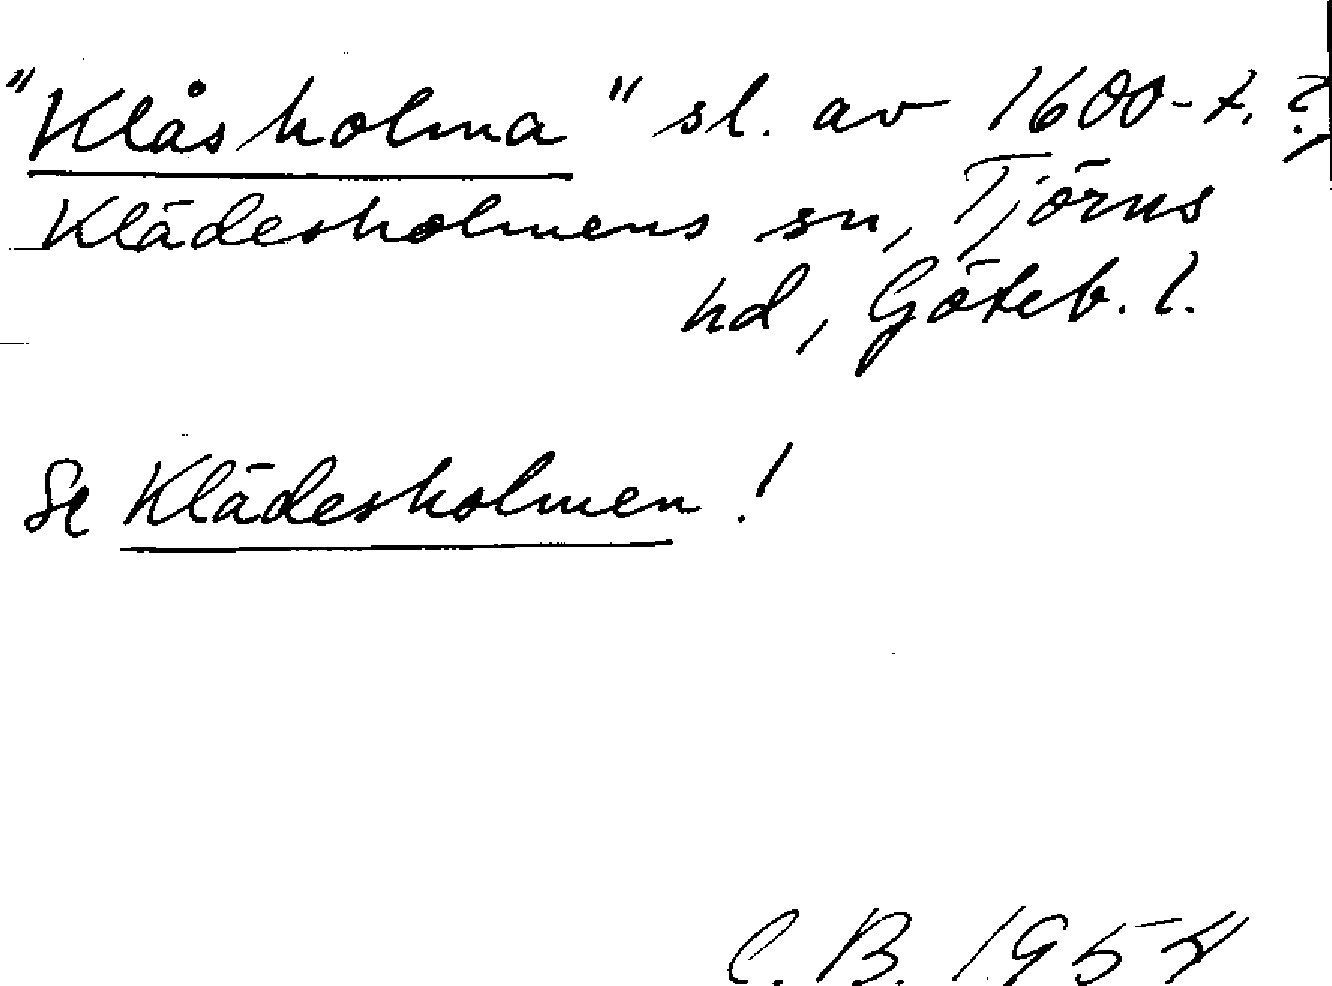 "Klåsholma" sl. av 1600-t.?,
Klädesholmens sn, Tjörns
hd, Göteb. l.
Se Klädesholmen!
C.B. 1954